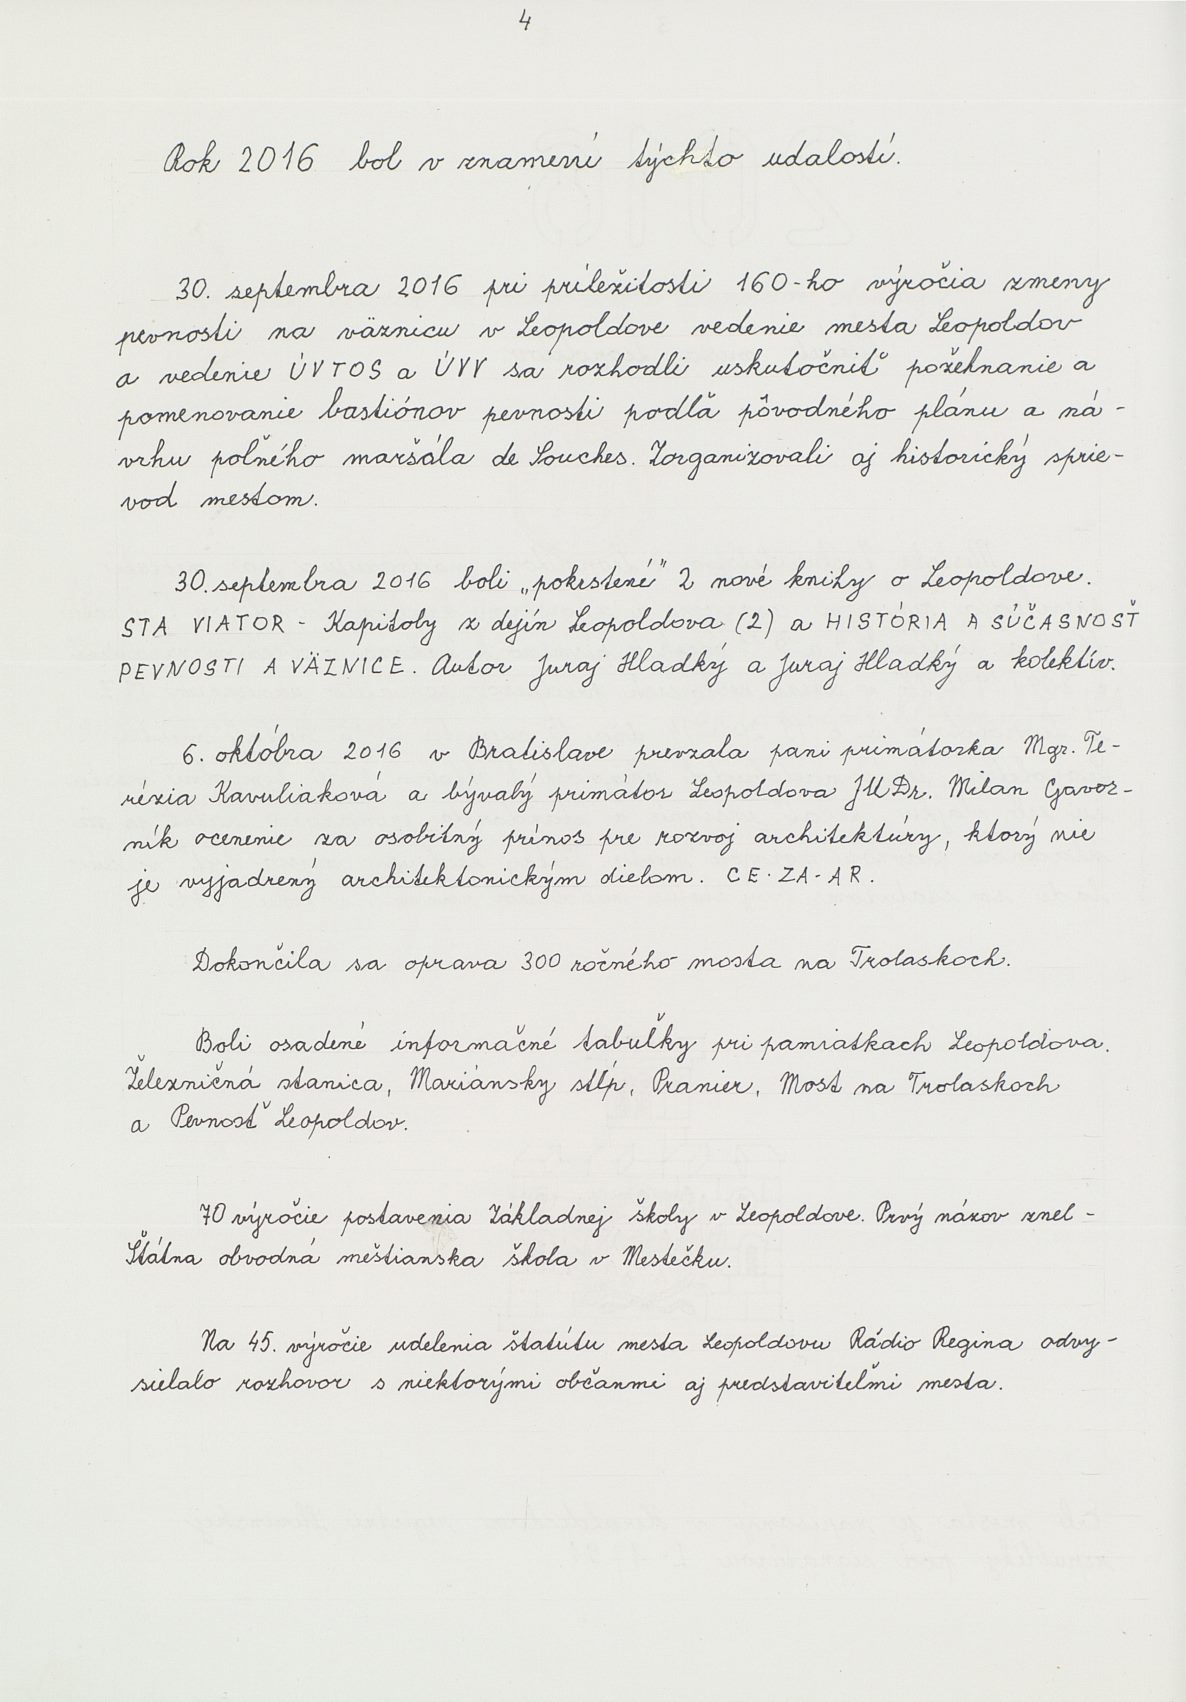 4
Rok 2016 bol v znamení týchto udalostí.
30. septembra 2016 pri príležitosti 160-ho výročia zmeny
pevnosti na väznicu v Leopoldove vedenie mesta Leopoldov
a vedenie ÚVTOS a ÚVV sa rozhodli uskutočniť požehnanie a
pomenovanie bastiónov pevnosti podľa pôvodného plánu a ná-
vrhu poľného maršála de Souches. Zorganizovali aj historický sprie-
vod mestom.
30. septembra 2016 boli „pokrstené" 2 nové knihy o Leopoldove.
STA VIATOR - Kapitoly z dejín Leopoldova (2) a HISTÓRIA A SÚČASNOSŤ
PEVNOSTI A VÄZNICE. Autor Juraj Hladký a Juraj Hladký a kolektív.
6. októbra 2016 v Bratislave prevzala pani primátorka Mgr. Te-
rézia Kavuliaková a bývalý primátor Leopoldova JUDr. Milan Gavor-
ník ocenenie za osobitný prínos pre rozvoj architektúry, ktorý nie
je vyjadrený architektonickým dielom. CE·ZA-AR.
Dokončila sa oprava 300 ročného mosta na Trolaskoch.
Boli osadené informačné tabuľky pri pamiatkach Leopoldova.
Železničná stanica, Mariánsky stĺp, Pranier, Most na Trolaskoch
a Pevnosť Leopoldov.
70 výročie postavenia Základnej školy v Leopoldove. Prvý názov znel -
Štátna obvodná meštianska škola v Mestečku.
Na 45. výročie udelenia štatútu mesta Leopoldovu Rádio Regina odvy-
sielalo rozhovor s niektorými občanmi aj predstaviteľmi mesta.